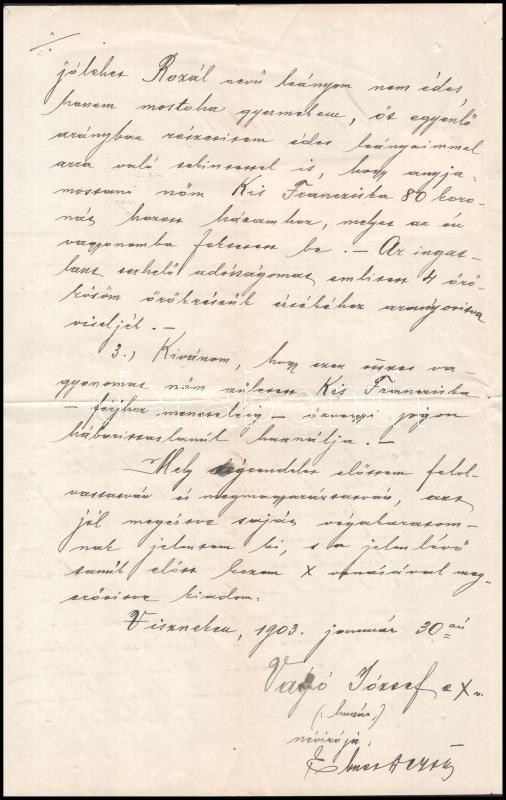 jólehet Rozál nevű leányom nem édes,
hanem mostoha gyermekem, őt egyenlő
arányban részesitem édes leányaimmal
arra való tekintettel is, hogy anyja
mostani nőm Kis Francziska 80 koro-
nát hozott házamhoz, melyet az én
vagyonomba fektetett be. – Az ingat-
lant terhelő adósságomat emlitett 4 örö-
kösöm örökrészük értékéhez arányositva
viseljék. –
3., Kivánom, hogy ezen összes va-
gyonomat nőm született Kis Francziska
– férjhez meneteleig – özvegyi jogon
háboritatlanúl használja. –
Mely végrendelet előttem felol-
vastatván és megmagyaráztatván, azt
jól megértve saját végakaratom-
nak jelentem ki, s a jelenlévő
tanúk előtt kezem X vonásával meg-
erősitve kiadom.
Viszneken, 1903. január 30án
Vágó József k X v.
(: huszár :)
névirója: